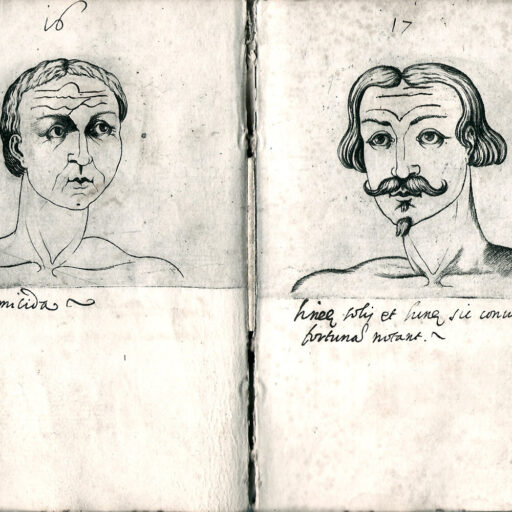 16
17
micida
lineę solis et lunę sic
fortunas notant.